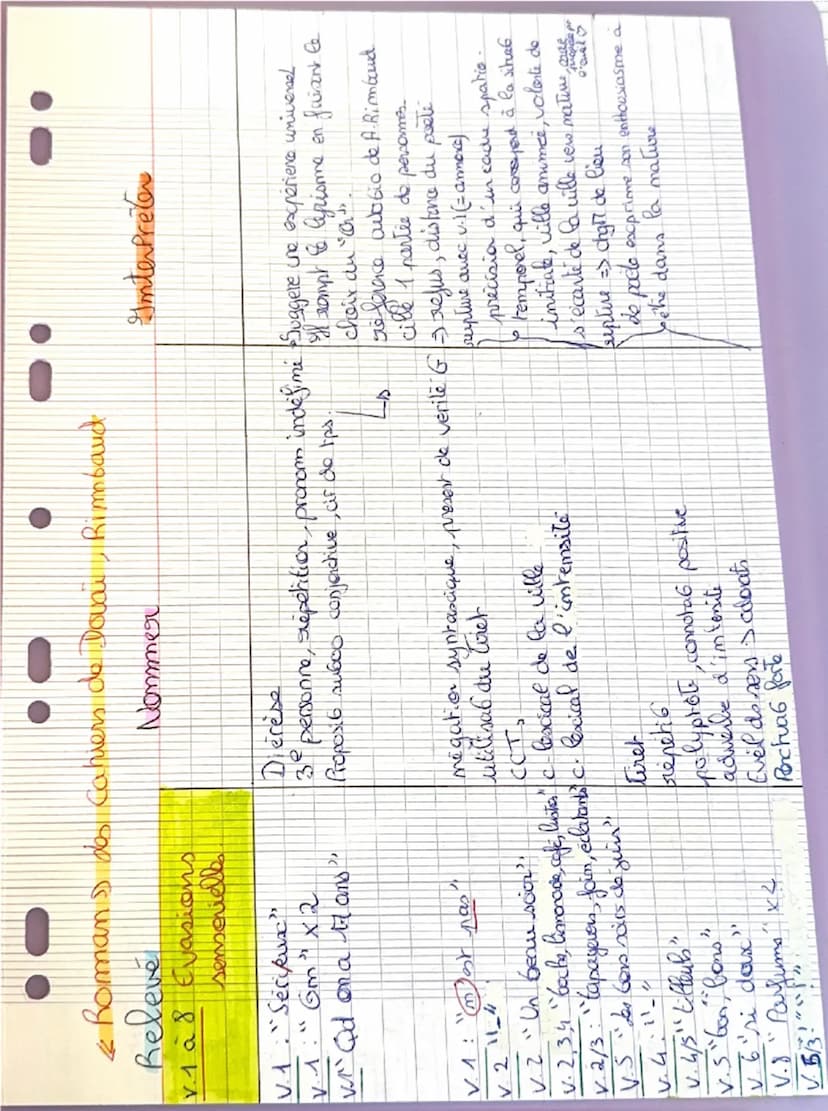 « Roman » des Cahiers de Douai, Rimbaud
Relevé Nommer Interpréter
V.1 à 8 Evasions
sensorielle
V.1 : "Sérieux" Diérèse
V.1 : "On" x2 3e personne, répétition, pronom indéfini Suggère une expérience universel
rompt le lyrisme en faisant le
choix du "On".
V1 "Qd on a 17 ans" Proposit° subo conjonctive, cir de tps.
référence autobio de A. Rimbaud
cible 1 partie de personnes
V.1 : "n'est pas" négation syntaxique, présent de vérité G => refus, distance du poète
V.2 "-" utilisat° du tiret rupture avec v.1 (= annonce)
V.2 "Un beau soir" CCT, précision d'un cadre spatio-
temporel, qui correspond à la situat°
V.2,3,4 "bocks, limonade, cafés, lustres" c. lexical de la ville
initiale, ville animée, volonté de
V.2/3 : "tapageurs, foin, éclatants" c. lexical de l'intensité
s'écarter de la ville vers nature
V.5 "les bons soirs de juin"
V.4 : "-" tiret rupture => chgt de lieu
V.4/5 "tilleuls" répétit°
V.5 "bon, bons" polyptote, connotat° positive
le poète exprime son enthousiasme à
être dans la nature
V.6 "si doux" adverbe d'intensité
V.8 "Parfums" x2 Eveil des sens > odorats
V.5/3 : "!" Ponctuat° forte